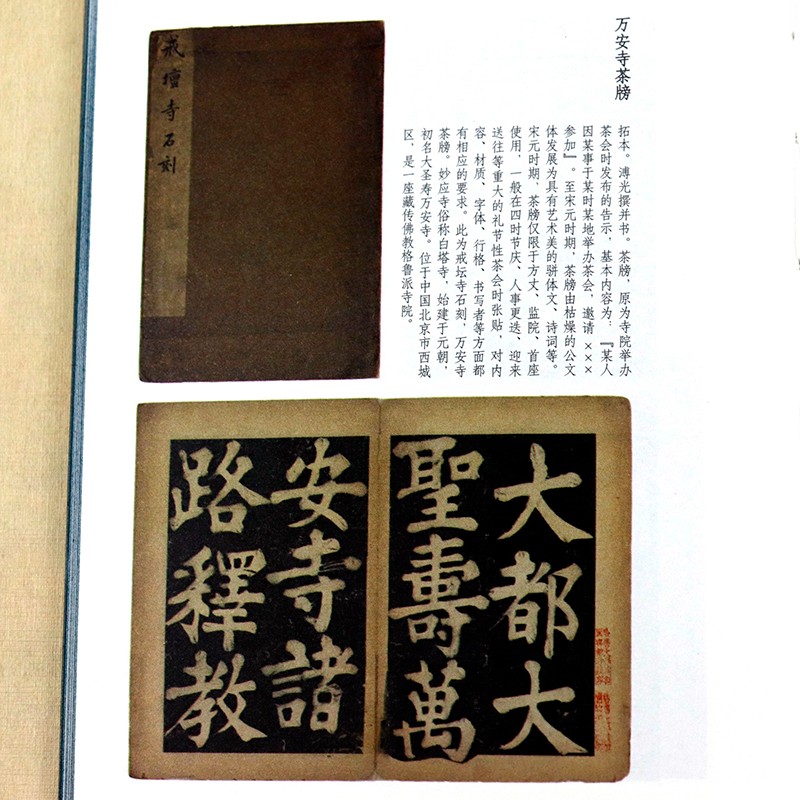 万安寺茶牓
拓本。溥光撰并书。茶牓，原为寺院举办
茶会时发布的告示，基本内容为：『某人
因某事于某时某地举办茶会，邀请×××
参加』。至宋元时期，茶牓由枯燥的公文
体发展为具有艺术美的骈体文、诗词等。
宋元时期，茶牓仅限于方丈、监院、首座
使用，一般在四时节庆、人事更迭、迎来
送往等重大的礼节性茶会时张贴，对内
容、材质、字体、行格、书写者等方面都
有相应的要求。此为戒坛寺石刻，万安寺
茶牓。妙应寺俗称白塔寺，始建于元朝，
初名大圣寿万安寺。位于中国北京市西城
区，是一座藏传佛教格鲁派寺院。
戒壇寺石刻
大都大
聖壽萬
安寺諸
路釋教